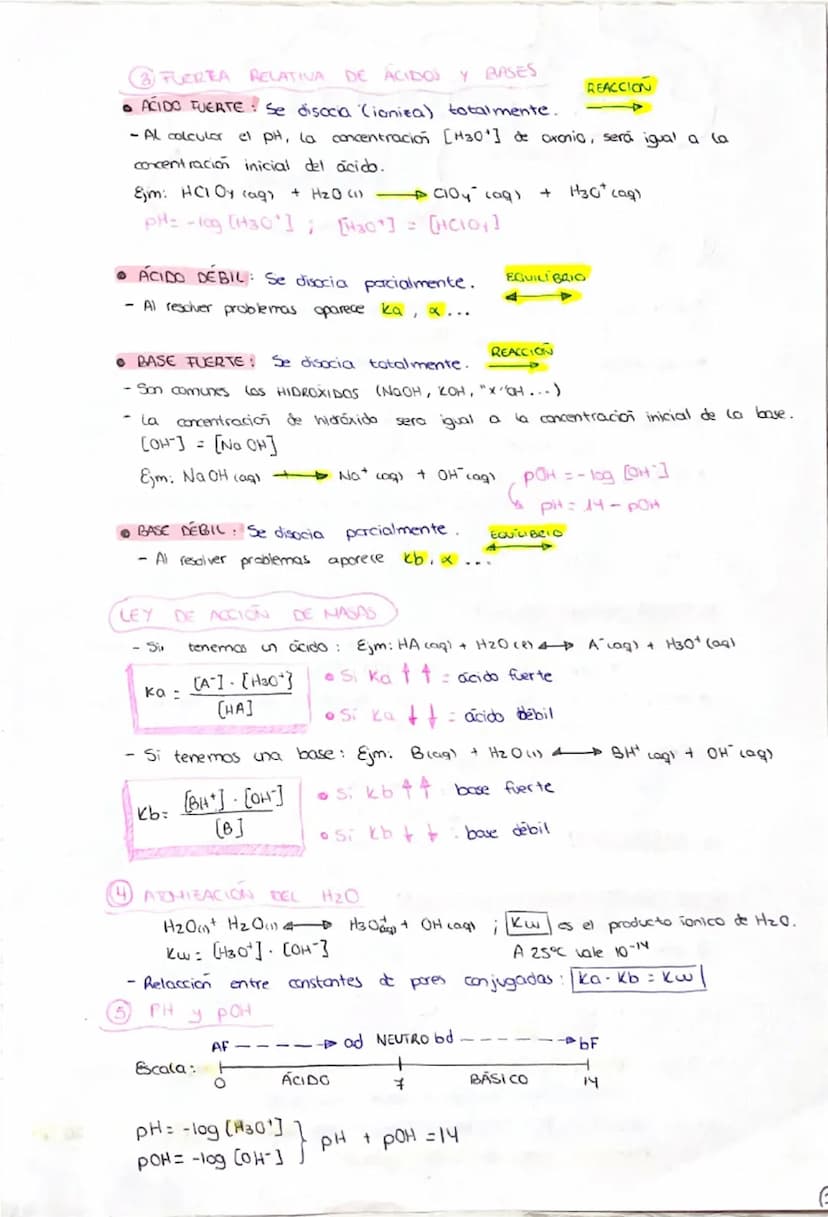 ③ FUERZA RELATIVA DE ÁCIDOS Y BASES
REACCIÓN
• ÁCIDO FUERTE: Se disocia (ioniza) totalmente. →
- Al calcular el pH, la concentración [H3O⁺] de oxonio, será igual a la
concentración inicial del ácido.
Ejm: HClO4 (aq) + H2O (l) → ClO4⁻ (aq) + H3O⁺ (aq)
pH = -log [H3O⁺] ; [H3O⁺] = [HClO4]
• ÁCIDO DÉBIL: Se disocia parcialmente. EQUILIBRIO ↔
- Al resolver problemas aparece ka, α...
REACCIÓN
• BASE FUERTE: Se disocia totalmente. →
- Son comunes los HIDRÓXIDOS (NaOH, KOH, "x"OH...)
- La concentración de hidróxido sera igual a la concentración inicial de la base.
[OH⁻] = [NaOH]
Ejm: NaOH (aq) → Na⁺ (aq) + OH⁻ (aq) pOH = -log [OH⁻]
↳ pH = 14 - pOH
• BASE DÉBIL: Se disocia parcialmente. EQUILIBRIO ↔
- Al resolver problemas aparece kb, α...
LEY DE ACCIÓN DE MASAS
- Si tenemos un ácido: Ejm: HA (aq) + H2O (l) ↔ A⁻ (aq) + H3O⁺ (aq)
Ka = [A⁻] · [H3O⁺] / [HA]
• Si Ka ↑ ↑ = ácido fuerte
• Si Ka ↓ ↓ = ácido débil
- Si tenemos una base: Ejm. B (aq) + H2O (l) ↔ BH⁺ (aq) + OH⁻ (aq)
Kb = [BH⁺] · [OH⁻] / [B]
• Si Kb ↑ ↑ : base fuerte
• Si Kb ↓ ↓ : base débil
④ DEL H2O
H2O (l) + H2O (l) ↔ H3O⁺ (aq) + OH (aq) ; Kw es el producto ionico de H2O.
Kw = [H3O⁺] · [OH⁻] A 25ºC vale 10⁻¹⁴
- Relacción entre constantes de pares conjugadas: Ka · Kb = Kw
⑤ PH y pOH
AF - - - - → ad NEUTRO bd - - - - → bF
Escala:
0 ÁCIDO 7 BÁSICO 14
pH = -log [H3O⁺]
pOH = -log [OH⁻] } pH + pOH = 14